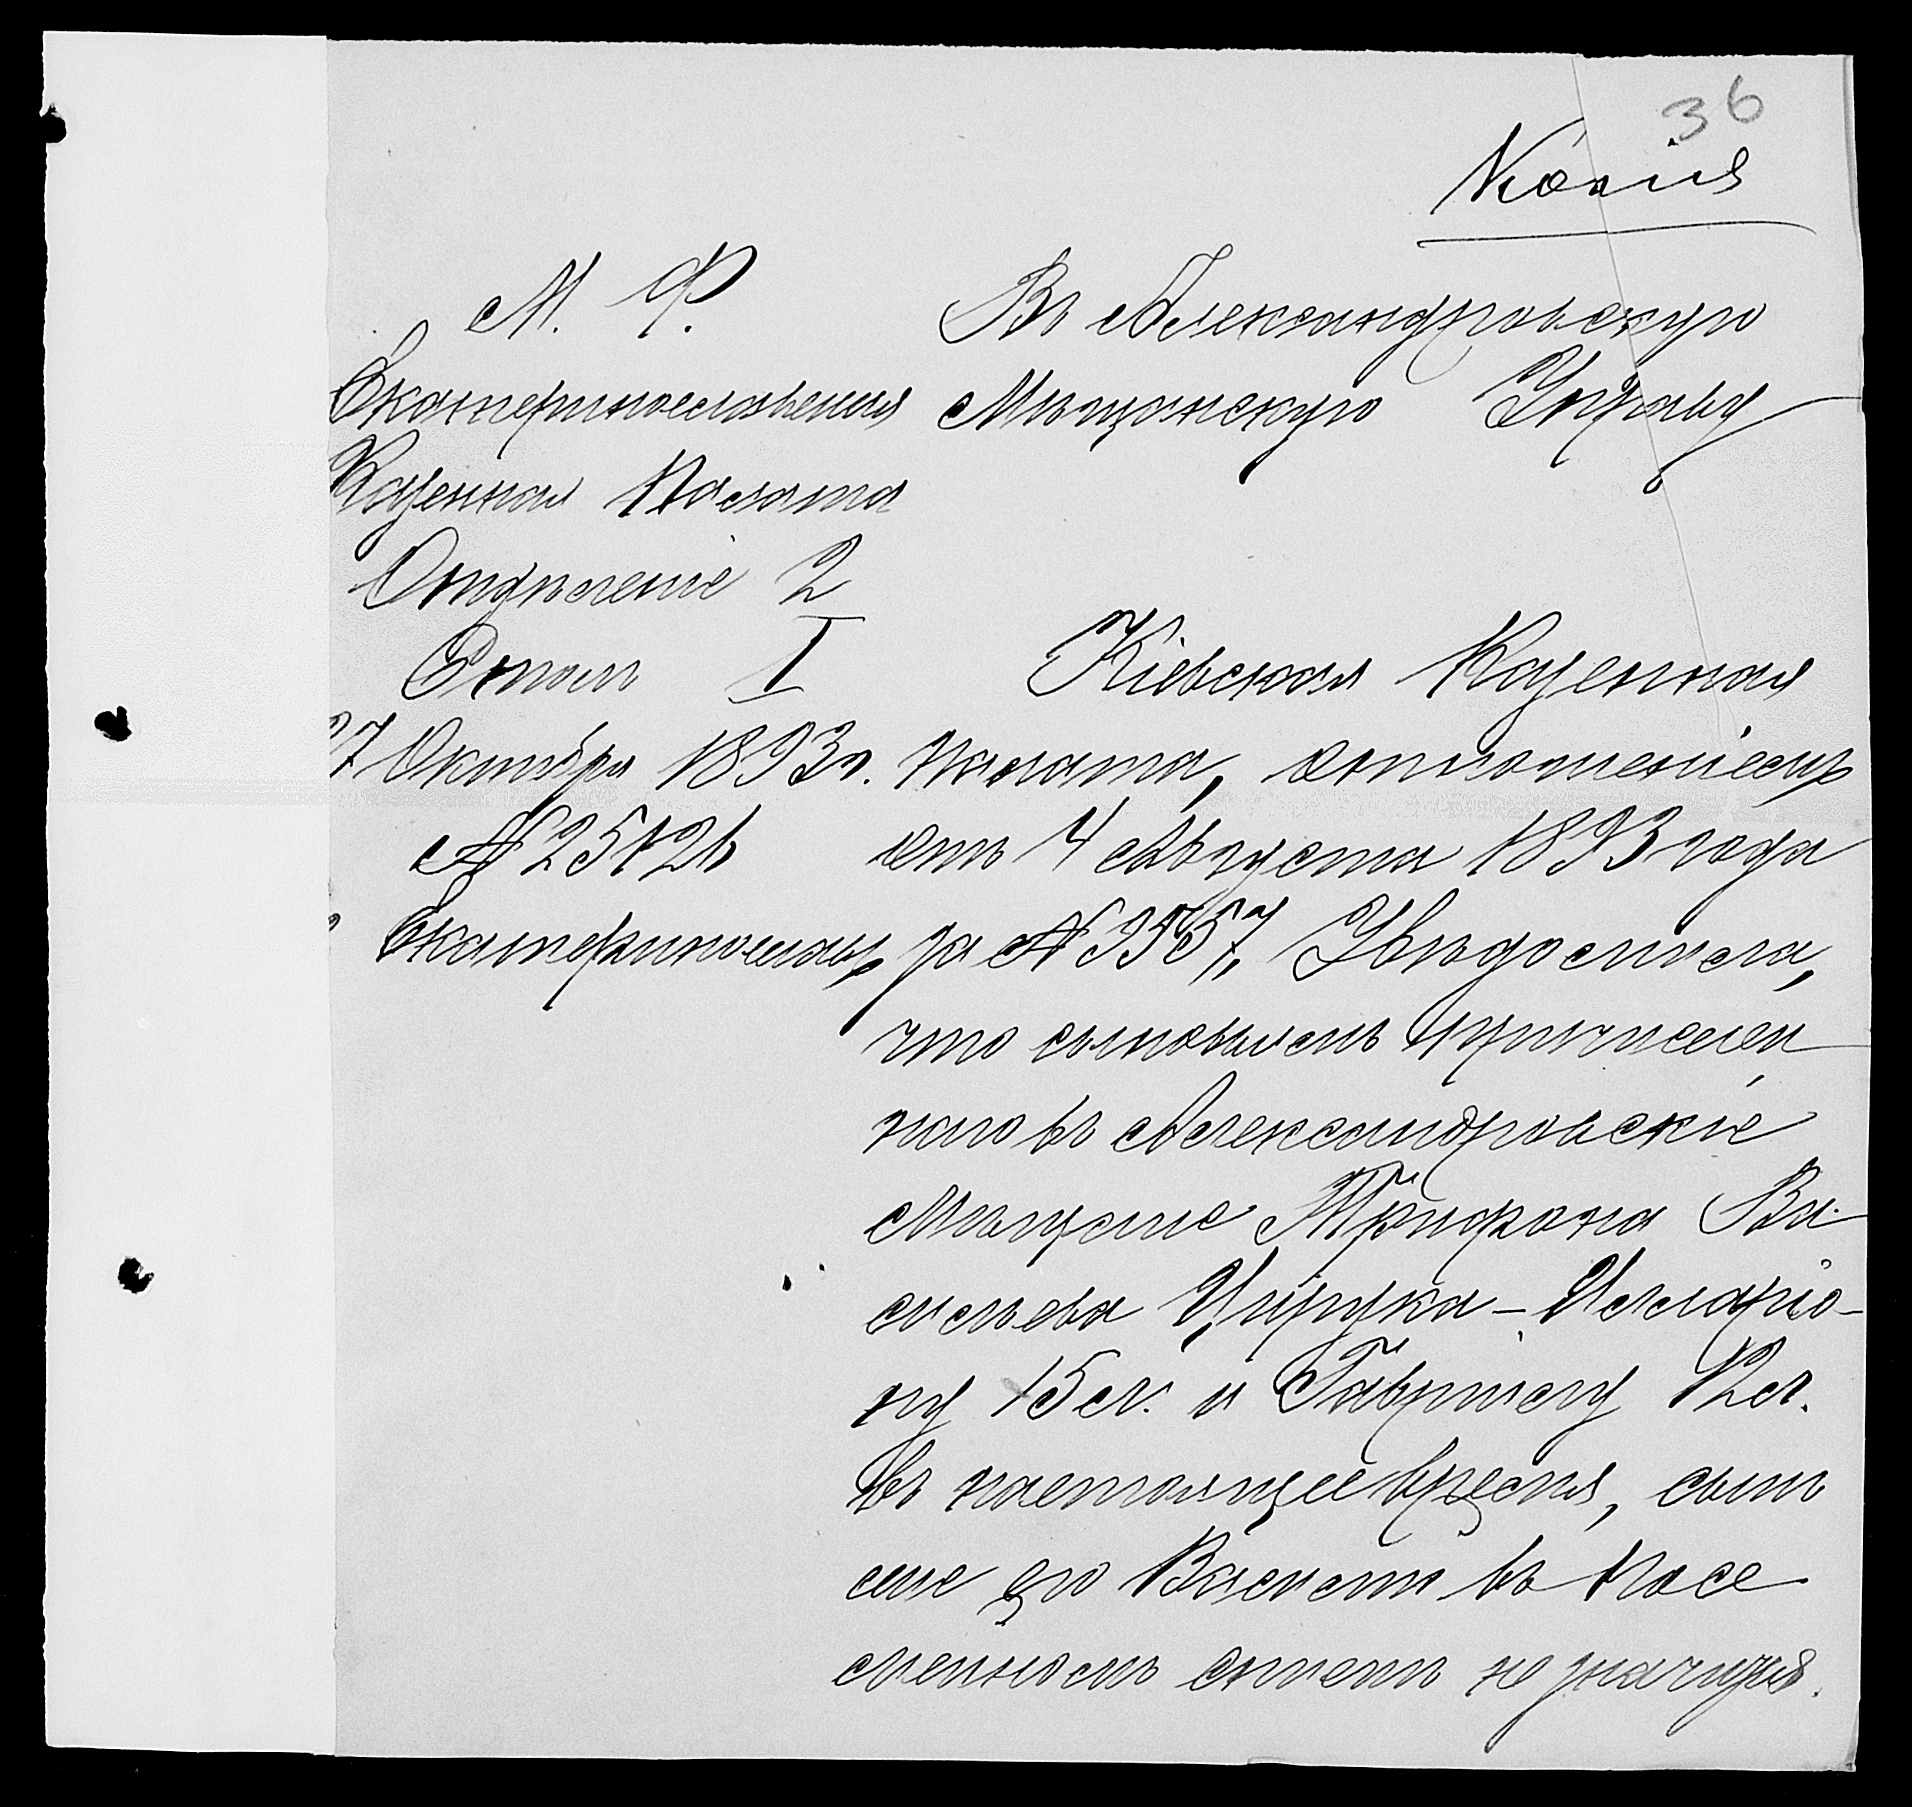 36
Копія
М. Ф.
Екатеринославская
Казенная Палата
Отдѣленіе 2
Столъ I
27 Октября 1893 г.
№ 25126
Екатеринославъ
Въ Александровскую
Мѣщанскую Управу
Кіевская Казенная
Палата, отношеніемъ
отъ 4 Августа 1893 года
за № 9557, Увѣдомила,
что сыновьямъ причислен
наго въ Александровскіе
Мѣщане Трифона Ва-
сильева Цирука - Илларіо-
ну 15 л. и Гавріилу 12 л.
въ настоящее время, сынъ
же его Василій въ посе
мейномъ спискѣ не значится.